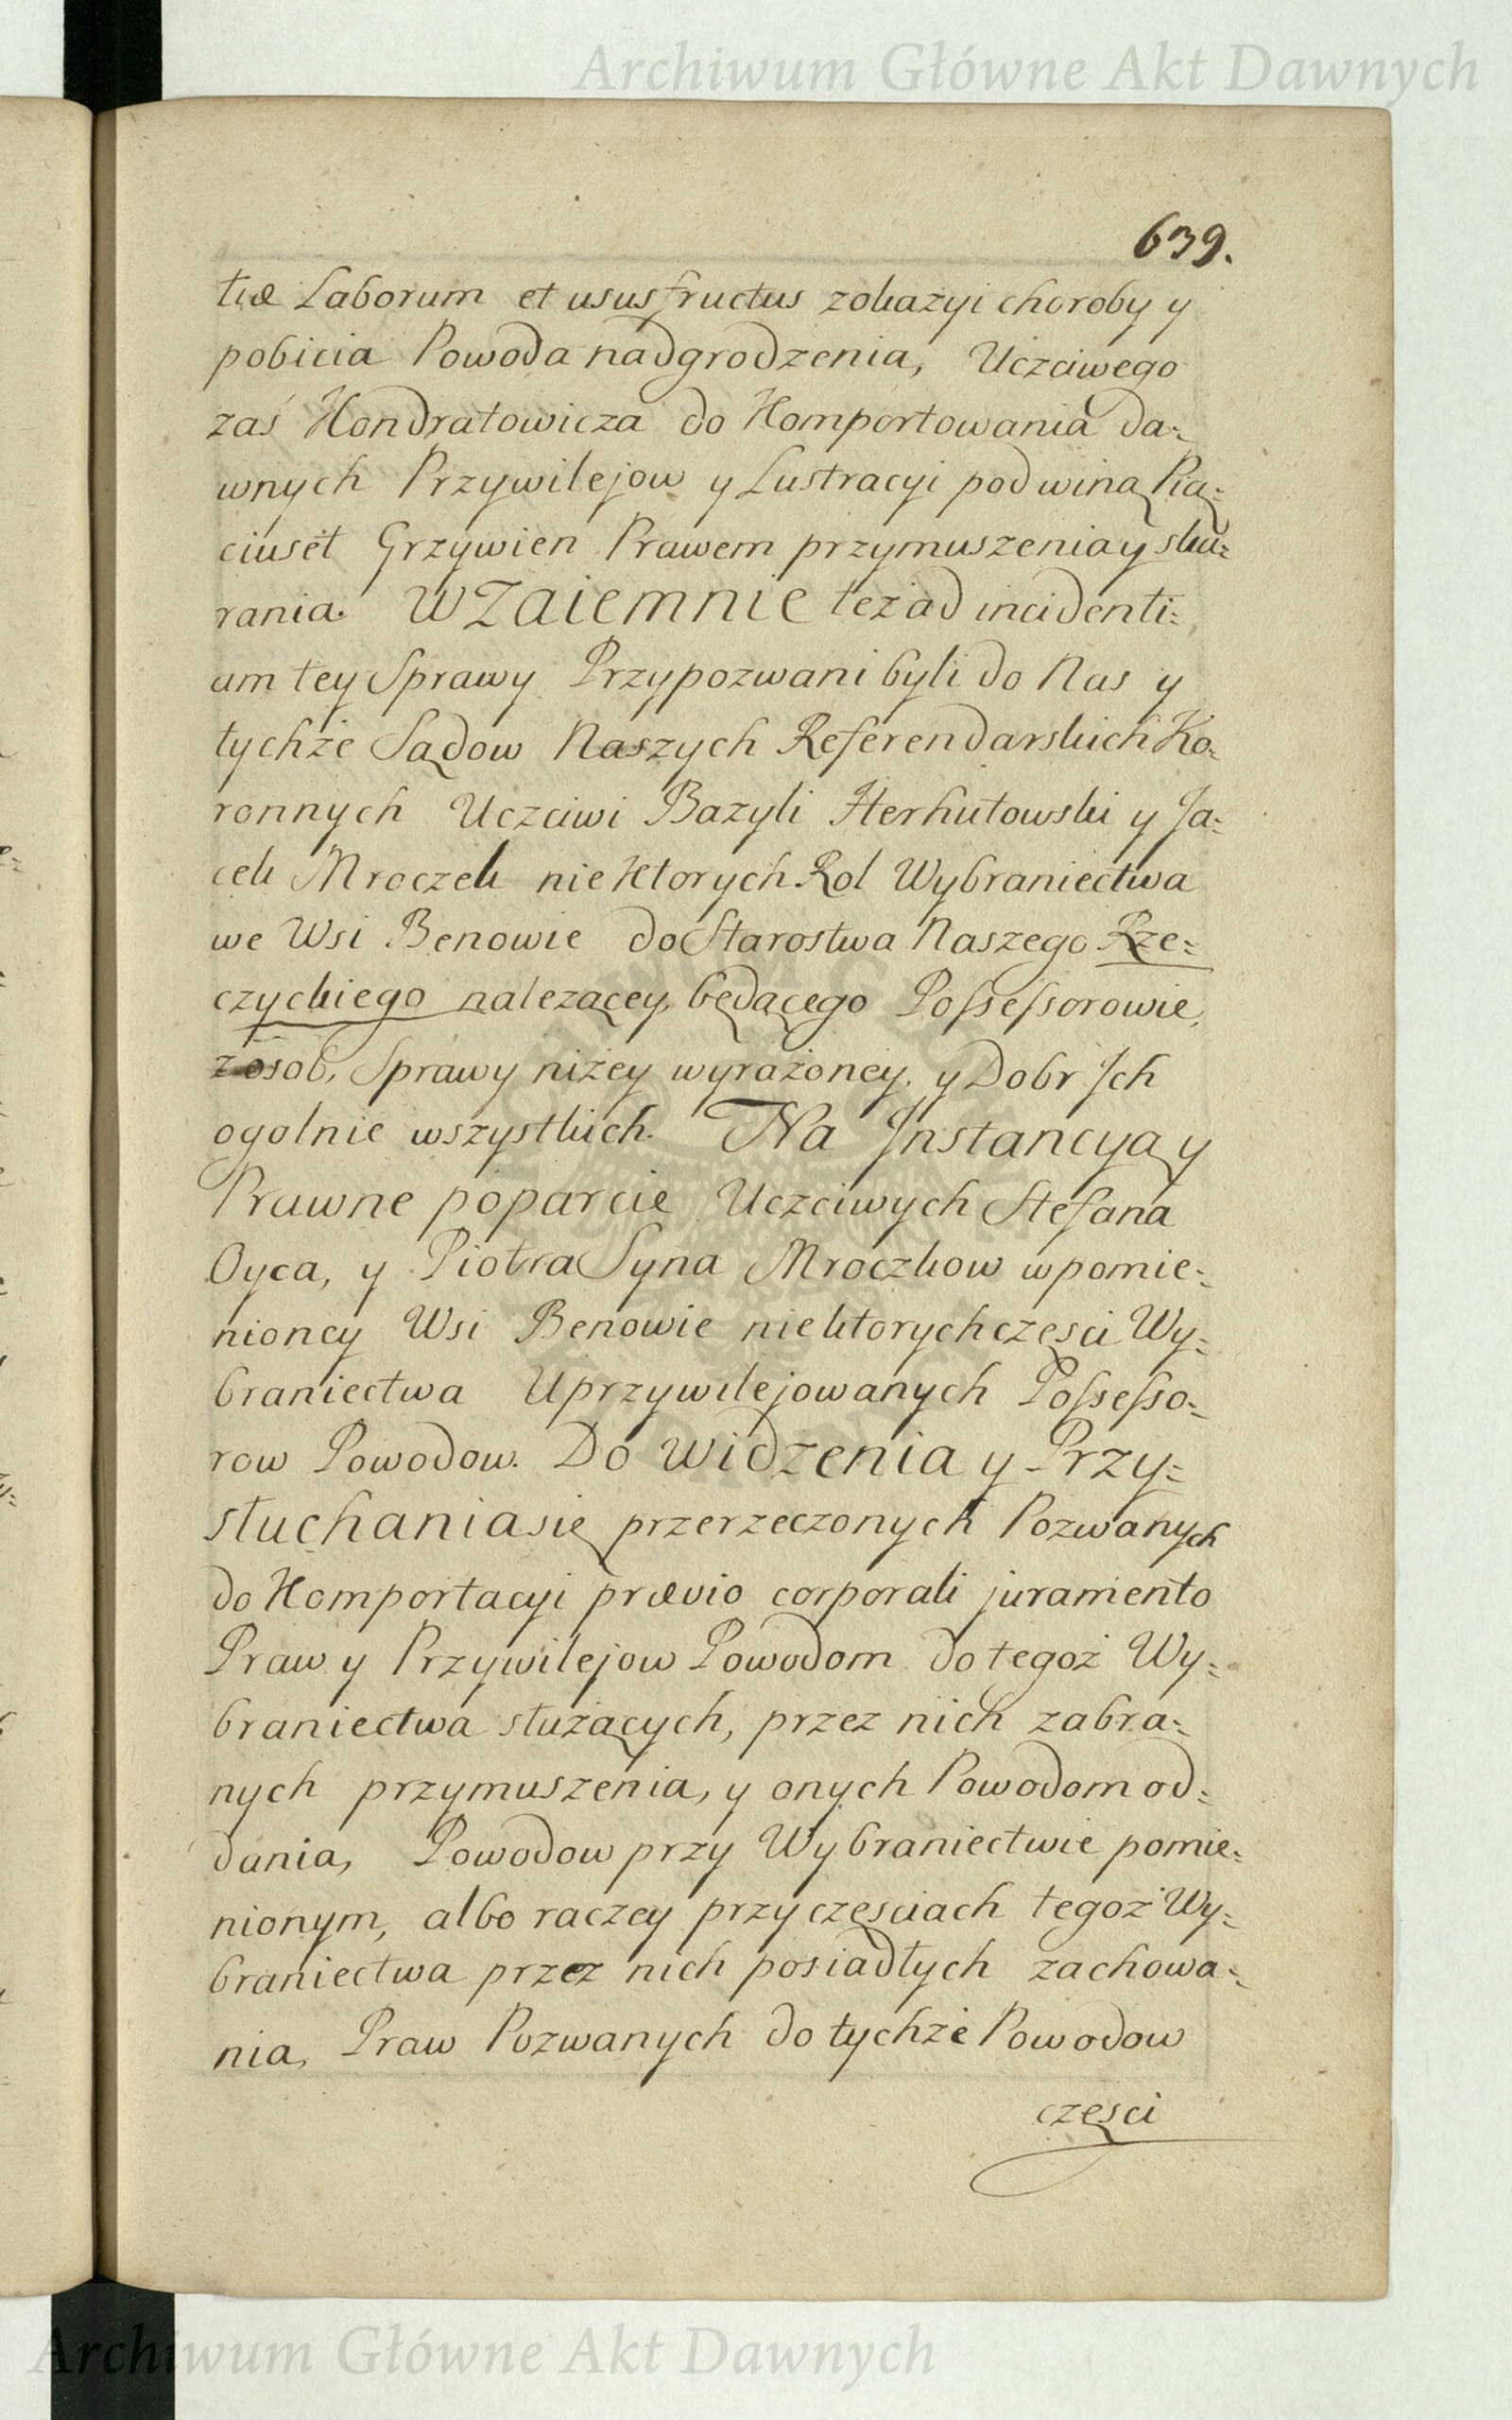 Archiwum Główne Akt Dawnych
639.
tiæ Laborum et ususfructus zokazyi choroby y
pobicia Powoda nadgrodzenia, Uczciwego
zaś Kondratowicza do Komportowania da=
wnych Przywilejow y Lustracyi pod winą Pią=
ciuset Grzywien Prawem przymuszenia y ska=
rania. WZaiemnie też ad incidenti=
am tey Sprawy Przypozwani byli do Nas y
tychże Sądow Naszych Referendarskich Ko=
ronnych Uczciwi Bazyli Herhutowski y Ja=
cek Mroczek niektorych Rol Wybraniectwa
we Wsi Benowie do Starostwa Naszego Rze=
czyckiego należącey, będącego Possessorowie,
z osob, Sprawy niżey wyrażoney, y Dobr Ich
ogolnie wszystkich. Na Instancyą y
Prawne poparcie Uczciwych Stefana
Oyca, y Piotra Syna Mroczkow wpomie=
nioney Wsi Benowie niektorych częsci Wy=
braniectwa Uprzywilejowanych Possesso=
row Powodow. Do widzenia y Przy=
słuchania się przerzeczonych Pozwanych
do Komportacyi prævio corporali juramento
Praw y Przywilejow Powodom do tegoż Wy=
braniectwa służących, przez nich zabra=
nych przymuszenia, y onych Powodom od=
dania, Powodow przy Wybraniectwie pomie=
nionym, albo raczey przy częsciach tegoż Wy=
braniectwa przez nich posiadłych zachowa=
nia, Praw Pozwanych do tychże Powodow
częsci
Archiwum Główne Akt Dawnych